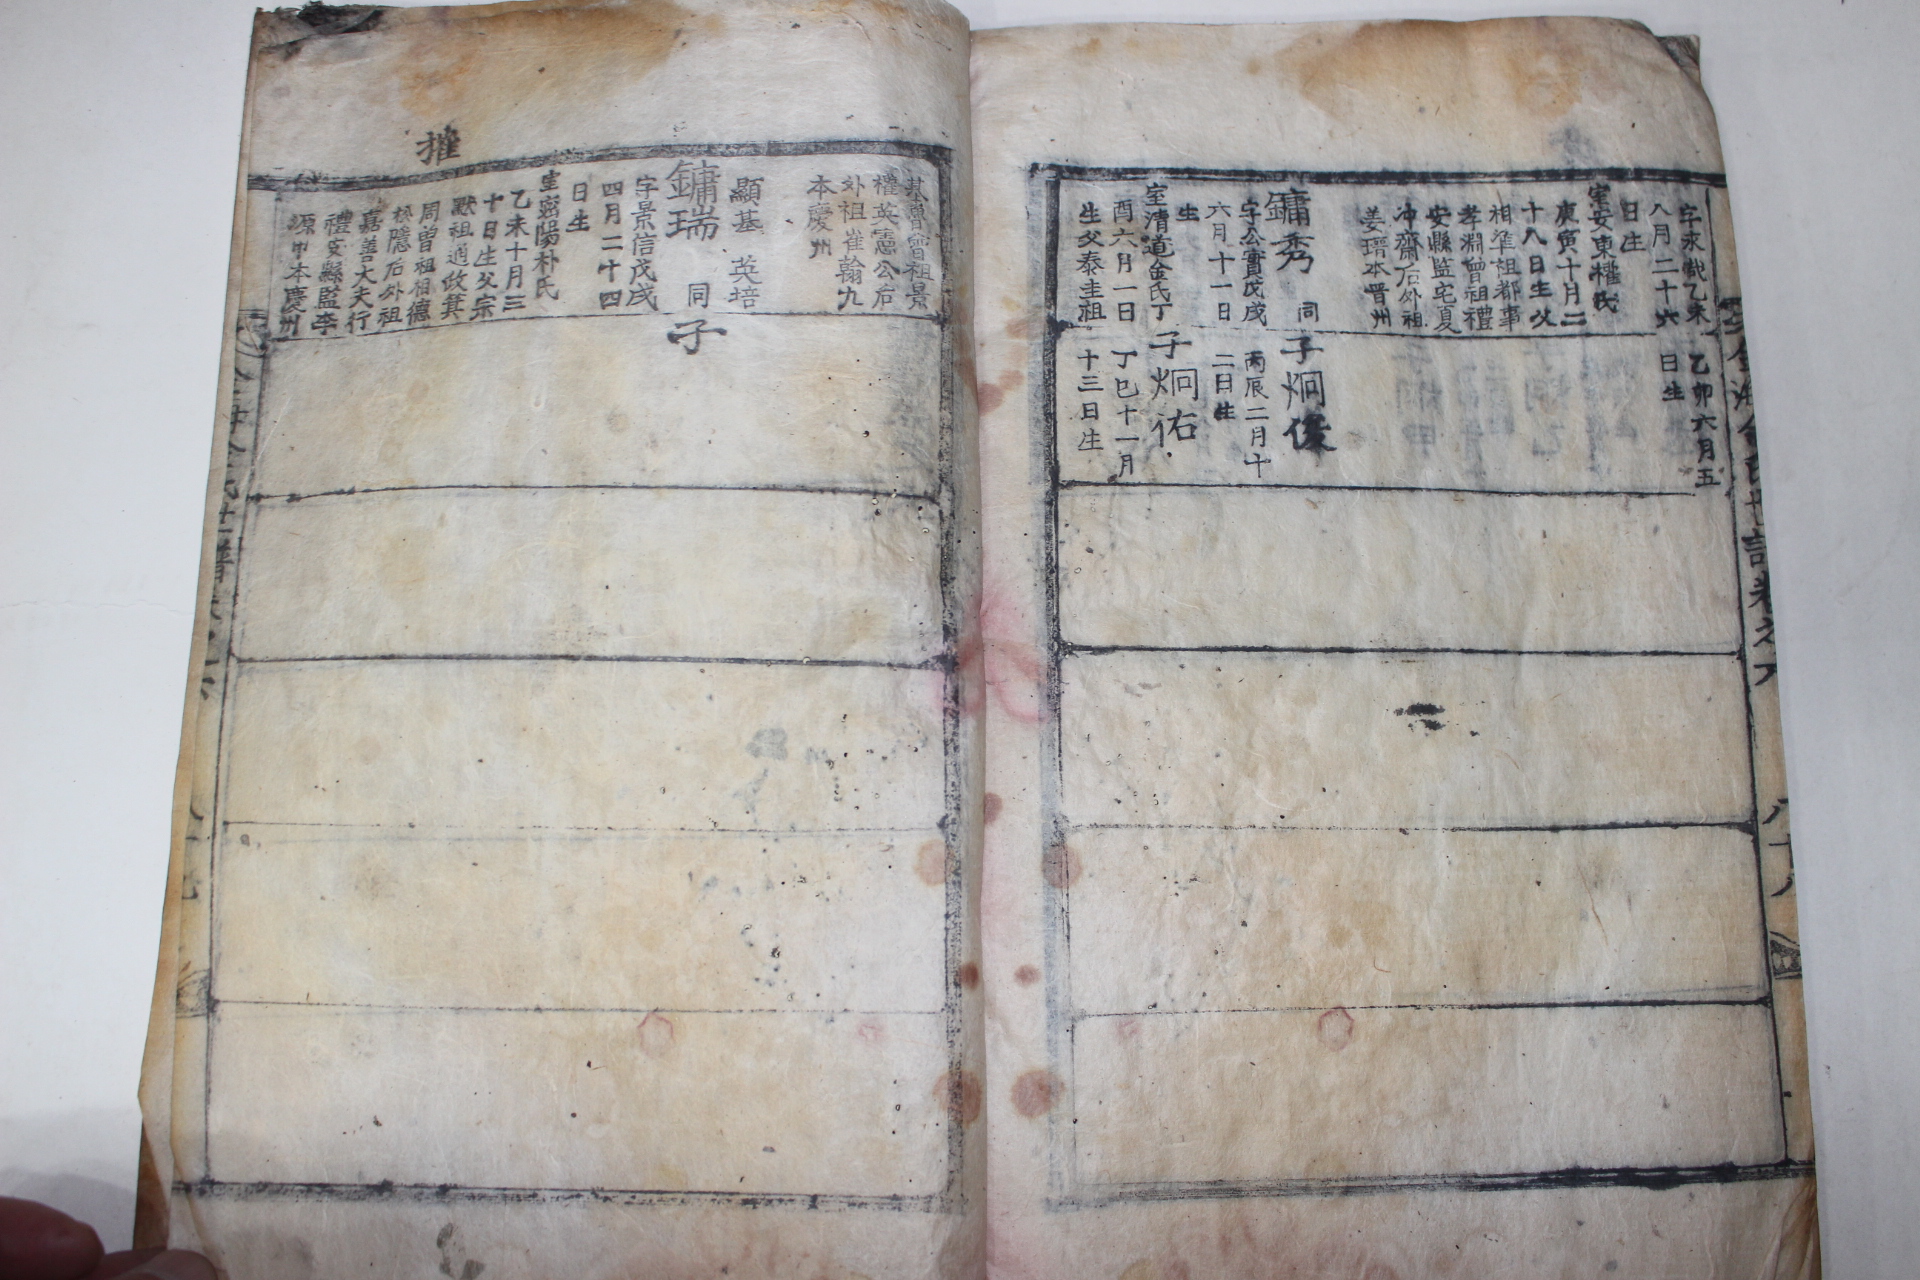 字永哉乙未
八月二十六
日生
室安東權氏
庚寅十月二
十八日生父
相準祖都事
孝淵曾祖禮
安縣監宅夏
冲齋后外祖
姜瑨本晋州
乙卯六月五
日生
鏞秀 同
字公實戊戌
六月十一日
生
室清道金氏丁
酉六月一日
生父泰圭祖
子炯俊
丙辰二月十
二日生
子炯佑
丁巳十一月
十三日生
基曾祖景
權英憲公后
外祖崔翰九
本慶州
顯基 英培
鏞瑞 同
子
字景信戊戌
四月二十四
日生
室密陽朴氏
乙未十月三
十日生父宗
默祖通政箕
周曾祖相德
松隱后外祖
嘉善大夫行
禮安縣監李
源中本慶州
金海金氏世譜卷之六
八十八